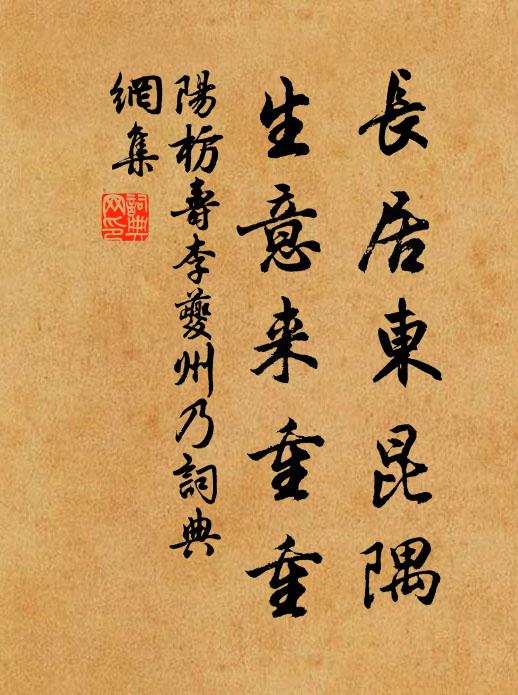 長居東昆隅
生意来重重
陽枋壽李夔州乃詞典
網集
詞典
网印